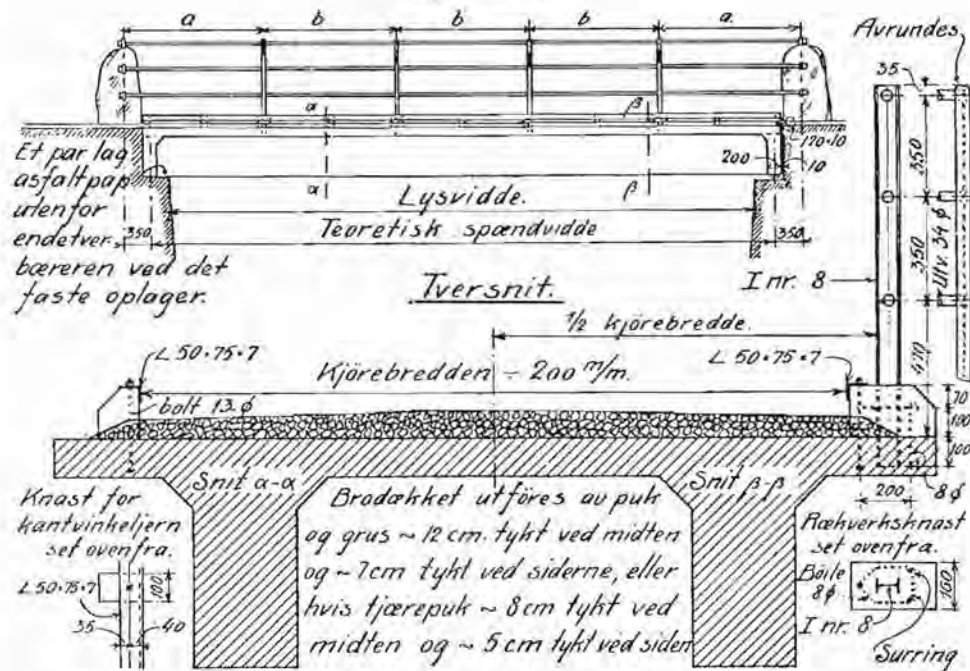 a b b b a
Avrundes
35
α β
120·10
200 10
Et par lag
asfaltpap
utenfor
endetver.
bæreren ved det
faste oplager.
α β
Lysvidde.
350 Teoretisk spændvidde 350
350
350
Utv. 34 φ
470
I nr. 8
Tversnit.
1/2 kjörebredde.
L 50·75·7
L 50·75·7
Kjörebredden - 200 m/m.
bolt 13 φ
70
100
100
Snit α-α
Snit β-β
8 φ
200
Knast for
kantvinkeljern
set ovenfra.
L 50·75·7
100
35 40
Brodækket utföres av puk
og grus ~ 12 cm. tykt ved midten
og ~ 7 cm tykt ved siderne, eller
hvis tjærepuk ~ 8 cm tykt ved
midten og ~ 5 cm tykt ved siden
Rækverksknast
set ovenfra.
Böile
8 φ
100
I nr. 8
Surring